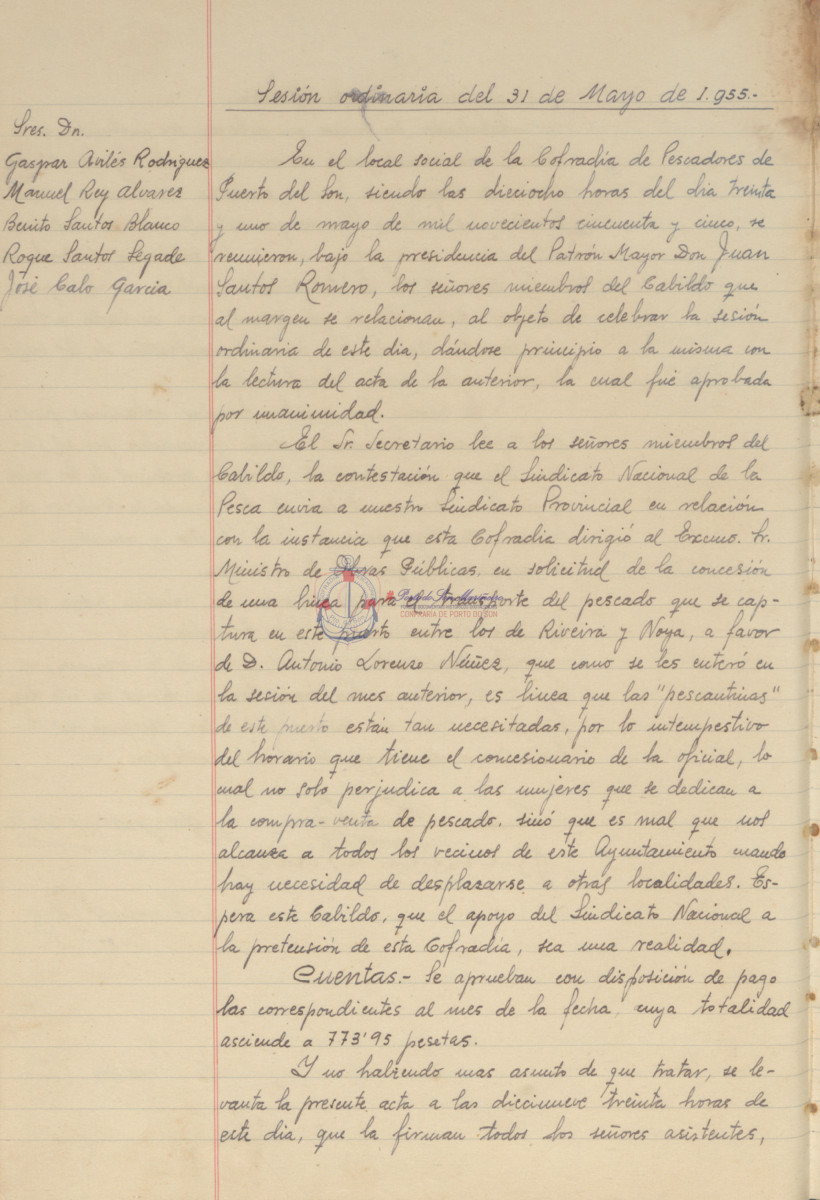 Sesión ordinaria del 31 de Mayo de 1.955.-
Sres. Dn.
Gaspar Avilés Rodriguez
Manuel Rey Alvarez
Benito Santos Blanco
Roque Santos Segade
José Calo Garcia
En el local social de la Cofradía de Pescadores de
Puerto del Son, siendo las dieciocho horas del día treinta
y uno de mayo de mil novecientos cincuenta y cinco, se
reunieron, bajo la presidencia del Patrón Mayor Don Juan
Santos Romero, los señores miembros del Cabildo que
al margen se relacionan, al objeto de celebrar la sesión
ordinaria de este dia, dándose principio a la misma con
la lectura del acta de la anterior, la cual fué aprobada
por unanimidad.
El Sr. Secretario lee a los señores miembros del
Cabildo, la contestación que el Sindicato Nacional de la
Pesca envia a nuestro Sindicato Provincial en relación
con la instancia que esta Cofradia dirigió al Excmo. Sr.
Ministro de Obras Públicas, en solicitud de la concesión
de una linea para el transporte del pescado que se cap-
tura en este puerto entre los de Riveira y Noya, a favor
de D. Antonio Lorenzo Núñez, que como se les enteró en
la sesión del mes anterior, es linea que las "pescantinas"
de este puerto están tan necesitadas, por lo intempestivo
del horario que tiene el concesionario de la oficial, lo
cual no solo perjudica a las mujeres que se dedican a
la compra-venta de pescado, sinó que es mal que nos
alcanza a todos los vecinos de este Ayuntamiento cuando
hay necesidad de desplazarse a otras localidades. Es-
pera este Cabildo, que el apoyo del Sindicato Nacional a
la pretensión de esta Cofradia, sea una realidad.
Cuentas.- Se aprueban con disposición de pago
las correspondientes al mes de la fecha, cuya totalidad
asciende a 773'95 pesetas.
Y no habiendo mas asunto de que tratar, se le-
vanta la presente acta a las diecinueve treinta horas de
este dia, que la firman todos los señores asistentes,
CONFRARÍA DE PORTO DO SON